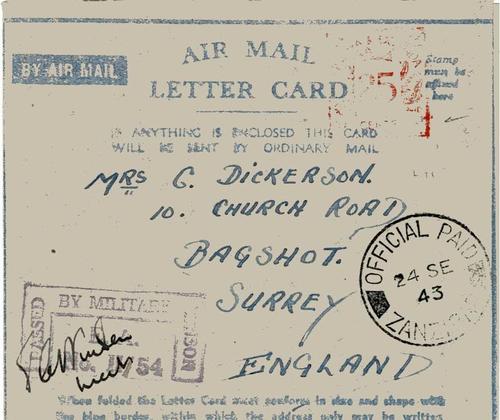 AIR MAIL
LETTER CARD
BY AIR MAIL
25
Stamp
must be
affixed
here
IF ANYTHING IS ENCLOSED THIS CARD
WILL BE SENT BY ORDINARY MAIL
MRS G. DICKERSON.
10. CHURCH ROAD
BAGSHOT.
SURREY
ENGLAND
OFFICIAL PAID
24 SE
43
PASSED
BY MILITARY
754
When folded the Letter Card must conform in size and shape with
the blue border, within which the address only may be written